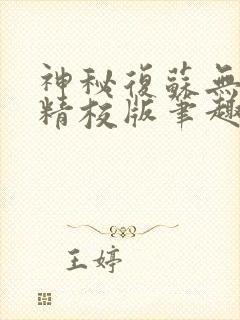 神秘復蘇無
精校版筆趣
王婷